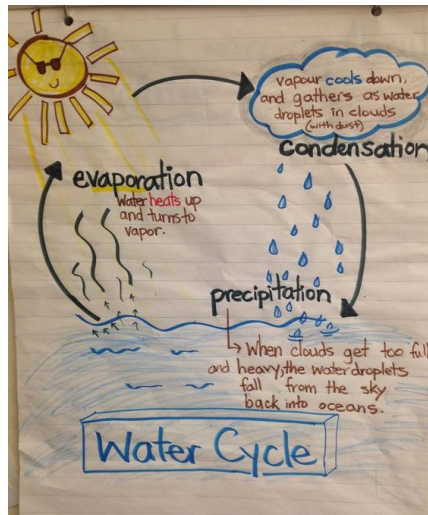 vapour cools down,
and gathers as water
droplets in clouds
(with dust)
condensation
evaporation
Water heats up
and turns to
vapor.
precipitation
When clouds get too full
and heavy, the water droplets
fall from the sky
back into oceans.
Water Cycle